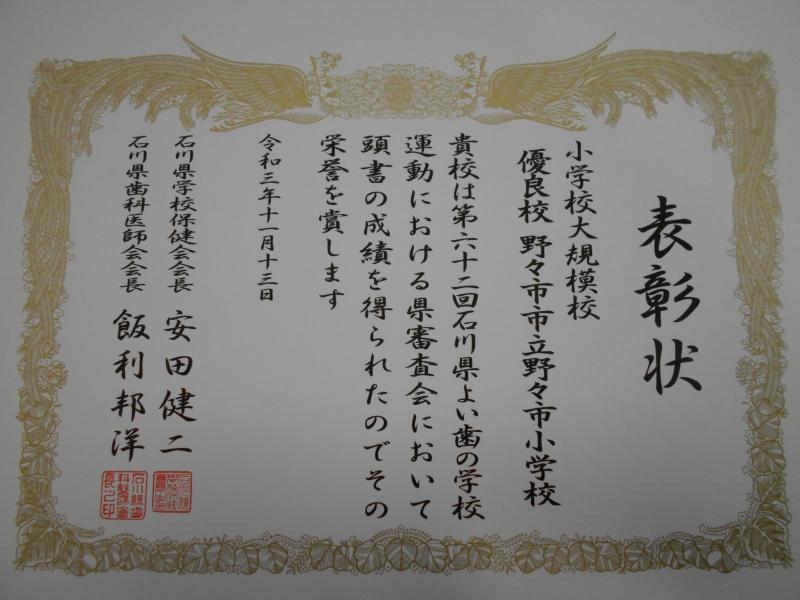 表彰状
小学校大規模校
優良校 野々市市立野々市小学校
貴校は第六十二回石川県よい歯の学校
運動における県審査会において
頭書の成績を得られたのでその
栄誉を賞します
令和三年十一月十三日
石川県学校保健会会長 安田健二
石川県歯科医師会会長 飯利邦洋